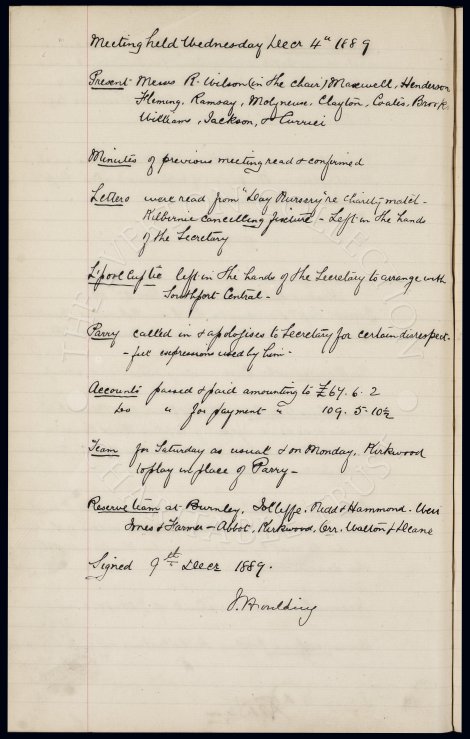 Meeting held Wednesday Decr 4th 1889
Present Messrs R. Wilson (in the chair) Maxwell, Henderson
Fleming, Ramsay, Molyneux, Clayton, Coates, Brooks
Williams, Jackson, &
Minutes of previous meeting read & confirmed
Letters were read from "Day Nursery" re charity match -
Kilbernie cancelling fixture - Left in the hands
of the Secretary
L'pool Cup tie left in the hands of the Secretary to arrange with
Southport Central -
Parry called in & apologises to Secretary for certain disrespect-
-ful expressions used by him -
Accounts passed & paid amounting to £67. 6. 2
Do " for payment " 109. 5. 10½
Team for Saturday as usual & on Monday, Kirkwood
to play in place of Parry -
Reserve team at Burnley, Jolliffe, & Hammond. Weir
Jones & Farmer - Abbot, Kirkwood, Orr, Walton & Deane
Signed 9th Decr 1889.
J. Houlding
THE EVERTON COLLECTION